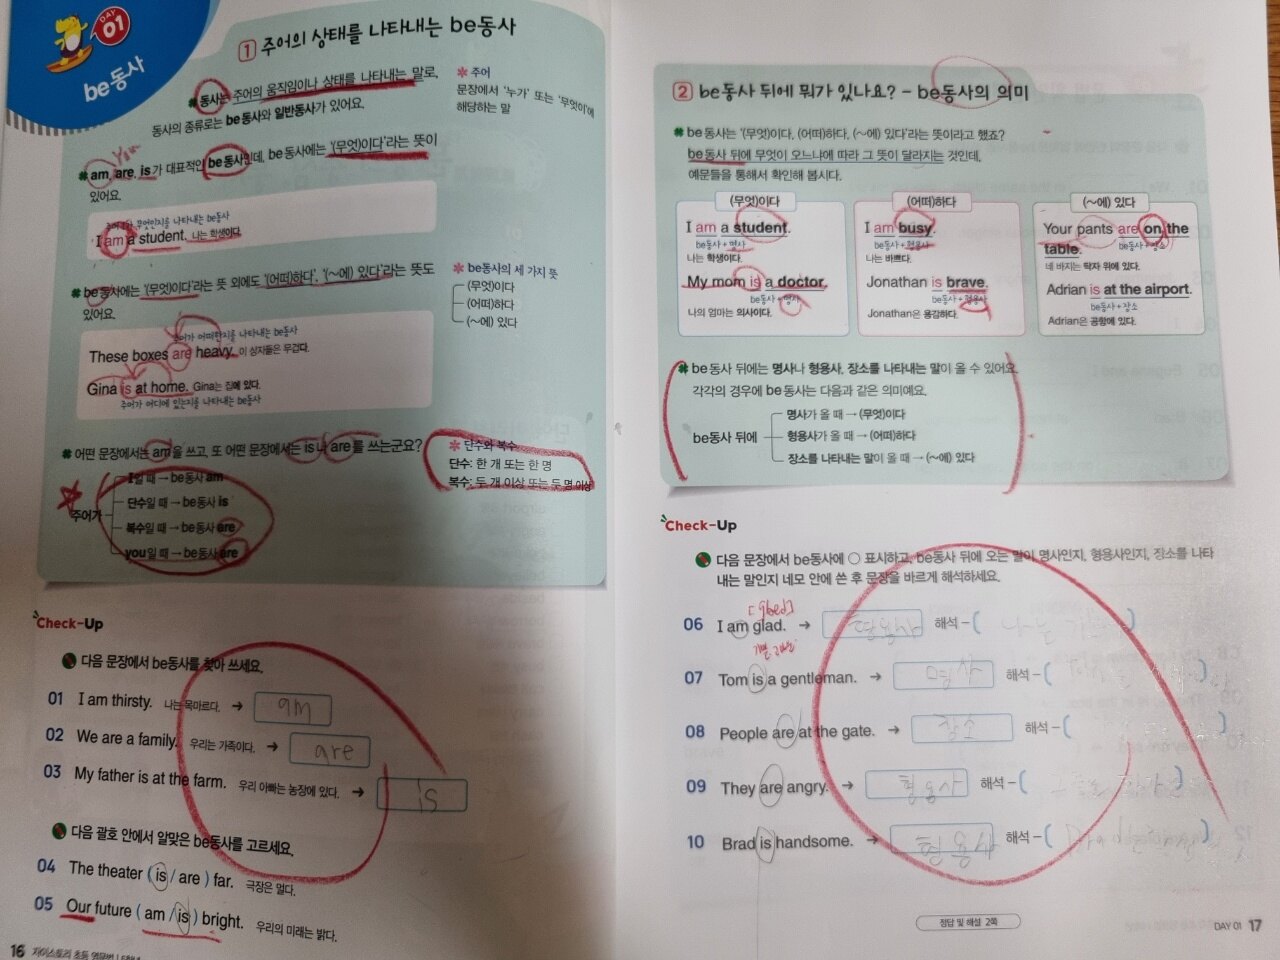 DAY 01
be동사
1 주어의 상태를 나타내는 be동사
동사는 주어의 움직임이나 상태를 나타내는 말로,
동사의 종류로는 be동사와 일반동사가 있어요.
* 주어
문장에서 '누가' 또는 '무엇이'에
해당하는 말
you
am, are, is가 대표적인 be동사인데, be동사에는 '(무엇)이다'라는 뜻이
있어요.
주어가 무엇인지를 나타내는 be동사
I am a student. 나는 학생이다.
be동사에는 '(무엇)이다'라는 뜻 외에도 '(어떠)하다', '(~에) 있다'라는 뜻도
있어요.
* be동사의 세 가지 뜻
(무엇)이다
(어떠)하다
(~에) 있다
주어가 어떠한지를 나타내는 be동사
These boxes are heavy. 이 상자들은 무겁다.
Gina is at home. Gina는 집에 있다.
주어가 어디에 있는지를 나타내는 be동사
어떤 문장에서는 am을 쓰고, 또 어떤 문장에서는 is나 are를 쓰는군요?
주어가
I일 때 → be동사 am
단수일 때 → be동사 is
복수일 때 → be동사 are
you일 때 → be동사 are
* 단수와 복수
단수: 한 개 또는 한 명
복수: 두 개 이상 또는 두 명 이상
Check-Up
다음 문장에서 be동사를 찾아 쓰세요.
01 I am thirsty. 나는 목마르다. → am
02 We are a family. 우리는 가족이다. → are
03 My father is at the farm. 우리 아빠는 농장에 있다. → is
다음 괄호 안에서 알맞은 be동사를 고르세요.
04 The theater ( is / are ) far. 극장은 멀다.
05 Our future ( am / is ) bright. 우리의 미래는 밝다.
16 자이스토리 초등 영문법
2 be동사 뒤에 뭐가 있나요? – be동사의 의미
be동사는 '(무엇)이다, (어떠)하다, (~에) 있다'라는 뜻이라고 했죠?
be동사 뒤에 무엇이 오느냐에 따라 그 뜻이 달라지는 것인데,
예문들을 통해서 확인해 봅시다.
(무엇)이다
I am a student.
be동사 + 명사
나는 학생이다.
My mom is a doctor.
be동사 + 명사
나의 엄마는 의사이다.
(어떠)하다
I am busy.
be동사 + 형용사
나는 바쁘다.
Jonathan is brave.
be동사 + 형용사
Jonathan은 용감하다.
(~에) 있다
Your pants are on the
table. be동사 + 장소
네 바지는 탁자 위에 있다.
Adrian is at the airport.
be동사 + 장소
Adrian은 공항에 있다.
be동사 뒤에는 명사나 형용사, 장소를 나타내는 말이 올 수 있어요.
각각의 경우에 be동사는 다음과 같은 의미예요.
be동사 뒤에
명사가 올 때 → (무엇)이다
형용사가 올 때 → (어떠)하다
장소를 나타내는 말이 올 때 → (~에) 있다
Check-Up
다음 문장에서 be동사에 ○ 표시하고, be동사 뒤에 오는 말이 명사인지, 형용사인지, 장소를 나타
내는 말인지 네모 안에 쓴 후 문장을 바르게 해석하세요.
06 I am glad. → 형용사 해석 – ( 나는 )
07 Tom is a gentleman. → 명사 해석 – ( )
08 People are at the gate. → 장소 해석 – ( )
09 They are angry. → 형용사 해석 – ( )
10 Brad is handsome. → 형용사 해석 – ( )
정답 및 해설 2쪽
DAY 01 17